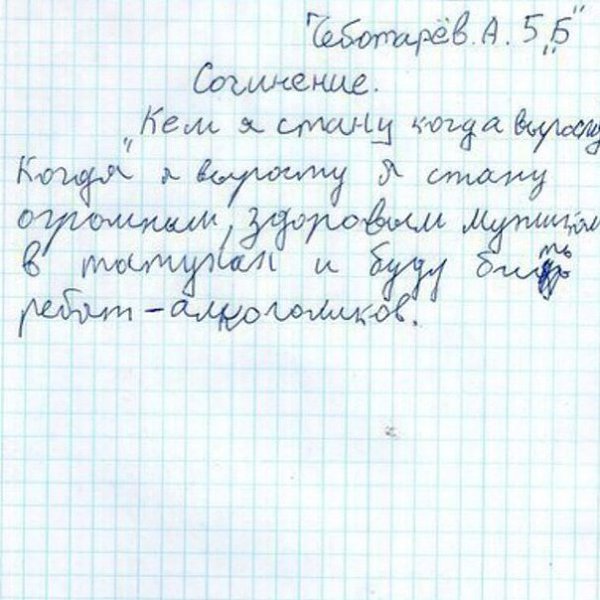 Чеботарёв. А. 5 „Б"
Сочинение.
„Кем я стану когда вырасту
Когда я вырасту я стану
огромным, здоровым мужиком
в татухах и буду бить
ребят-алкоголиков.